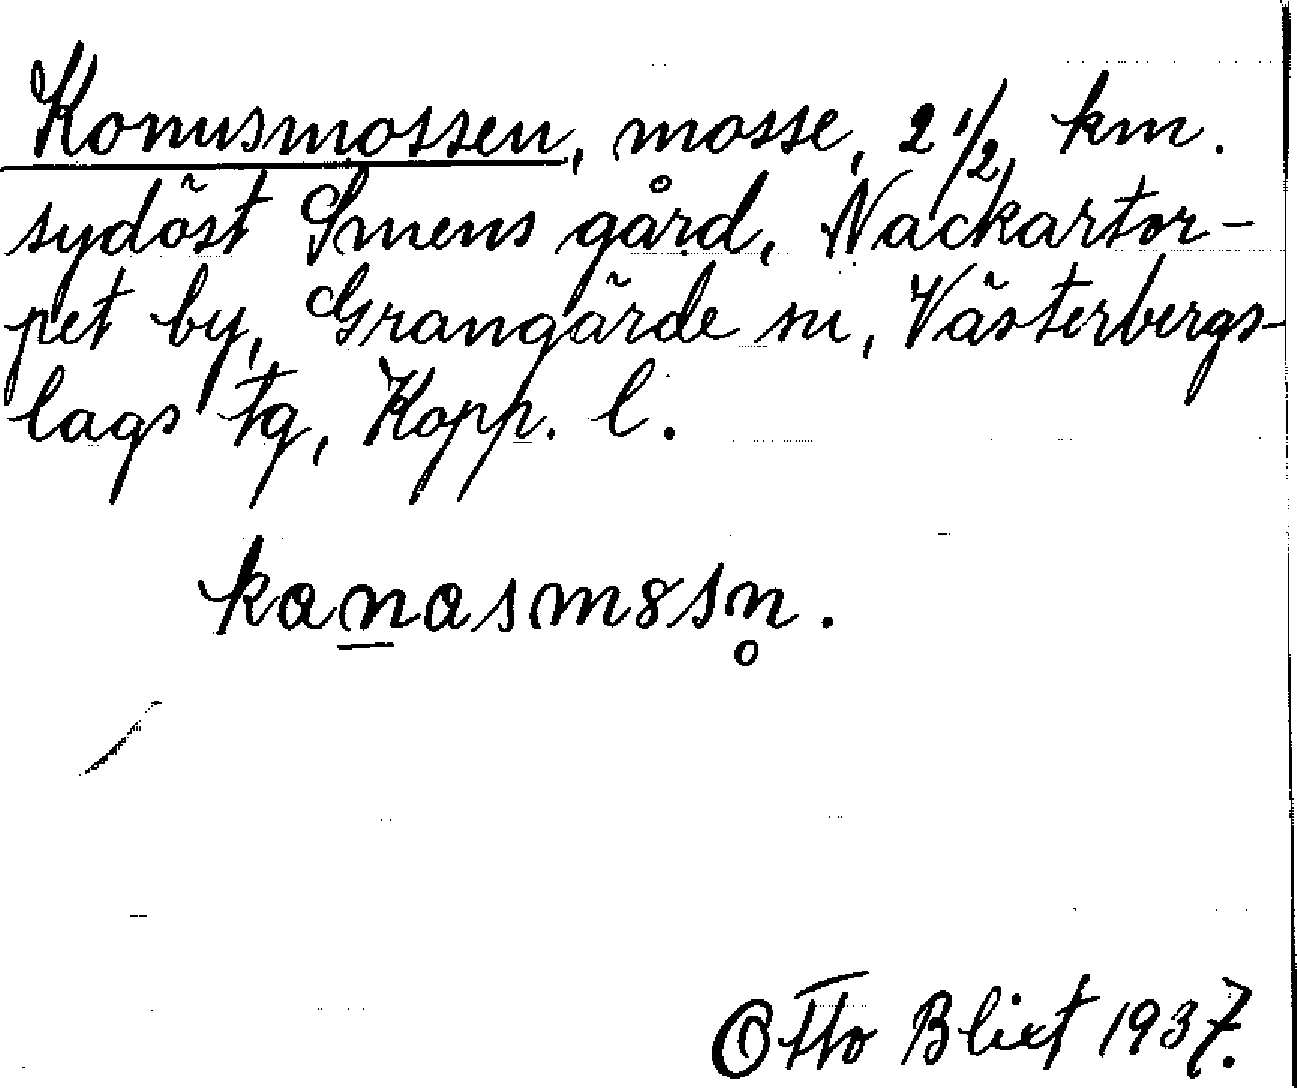 Konusmossen, mosse, 2 1/2 km.
sydöst Smens gård, Nackartor-
pet by, Grangärde sn, Västerbergs-
lags tg, Kopp. l.
kanasm8sn̥.
Otto Blixt 1937.